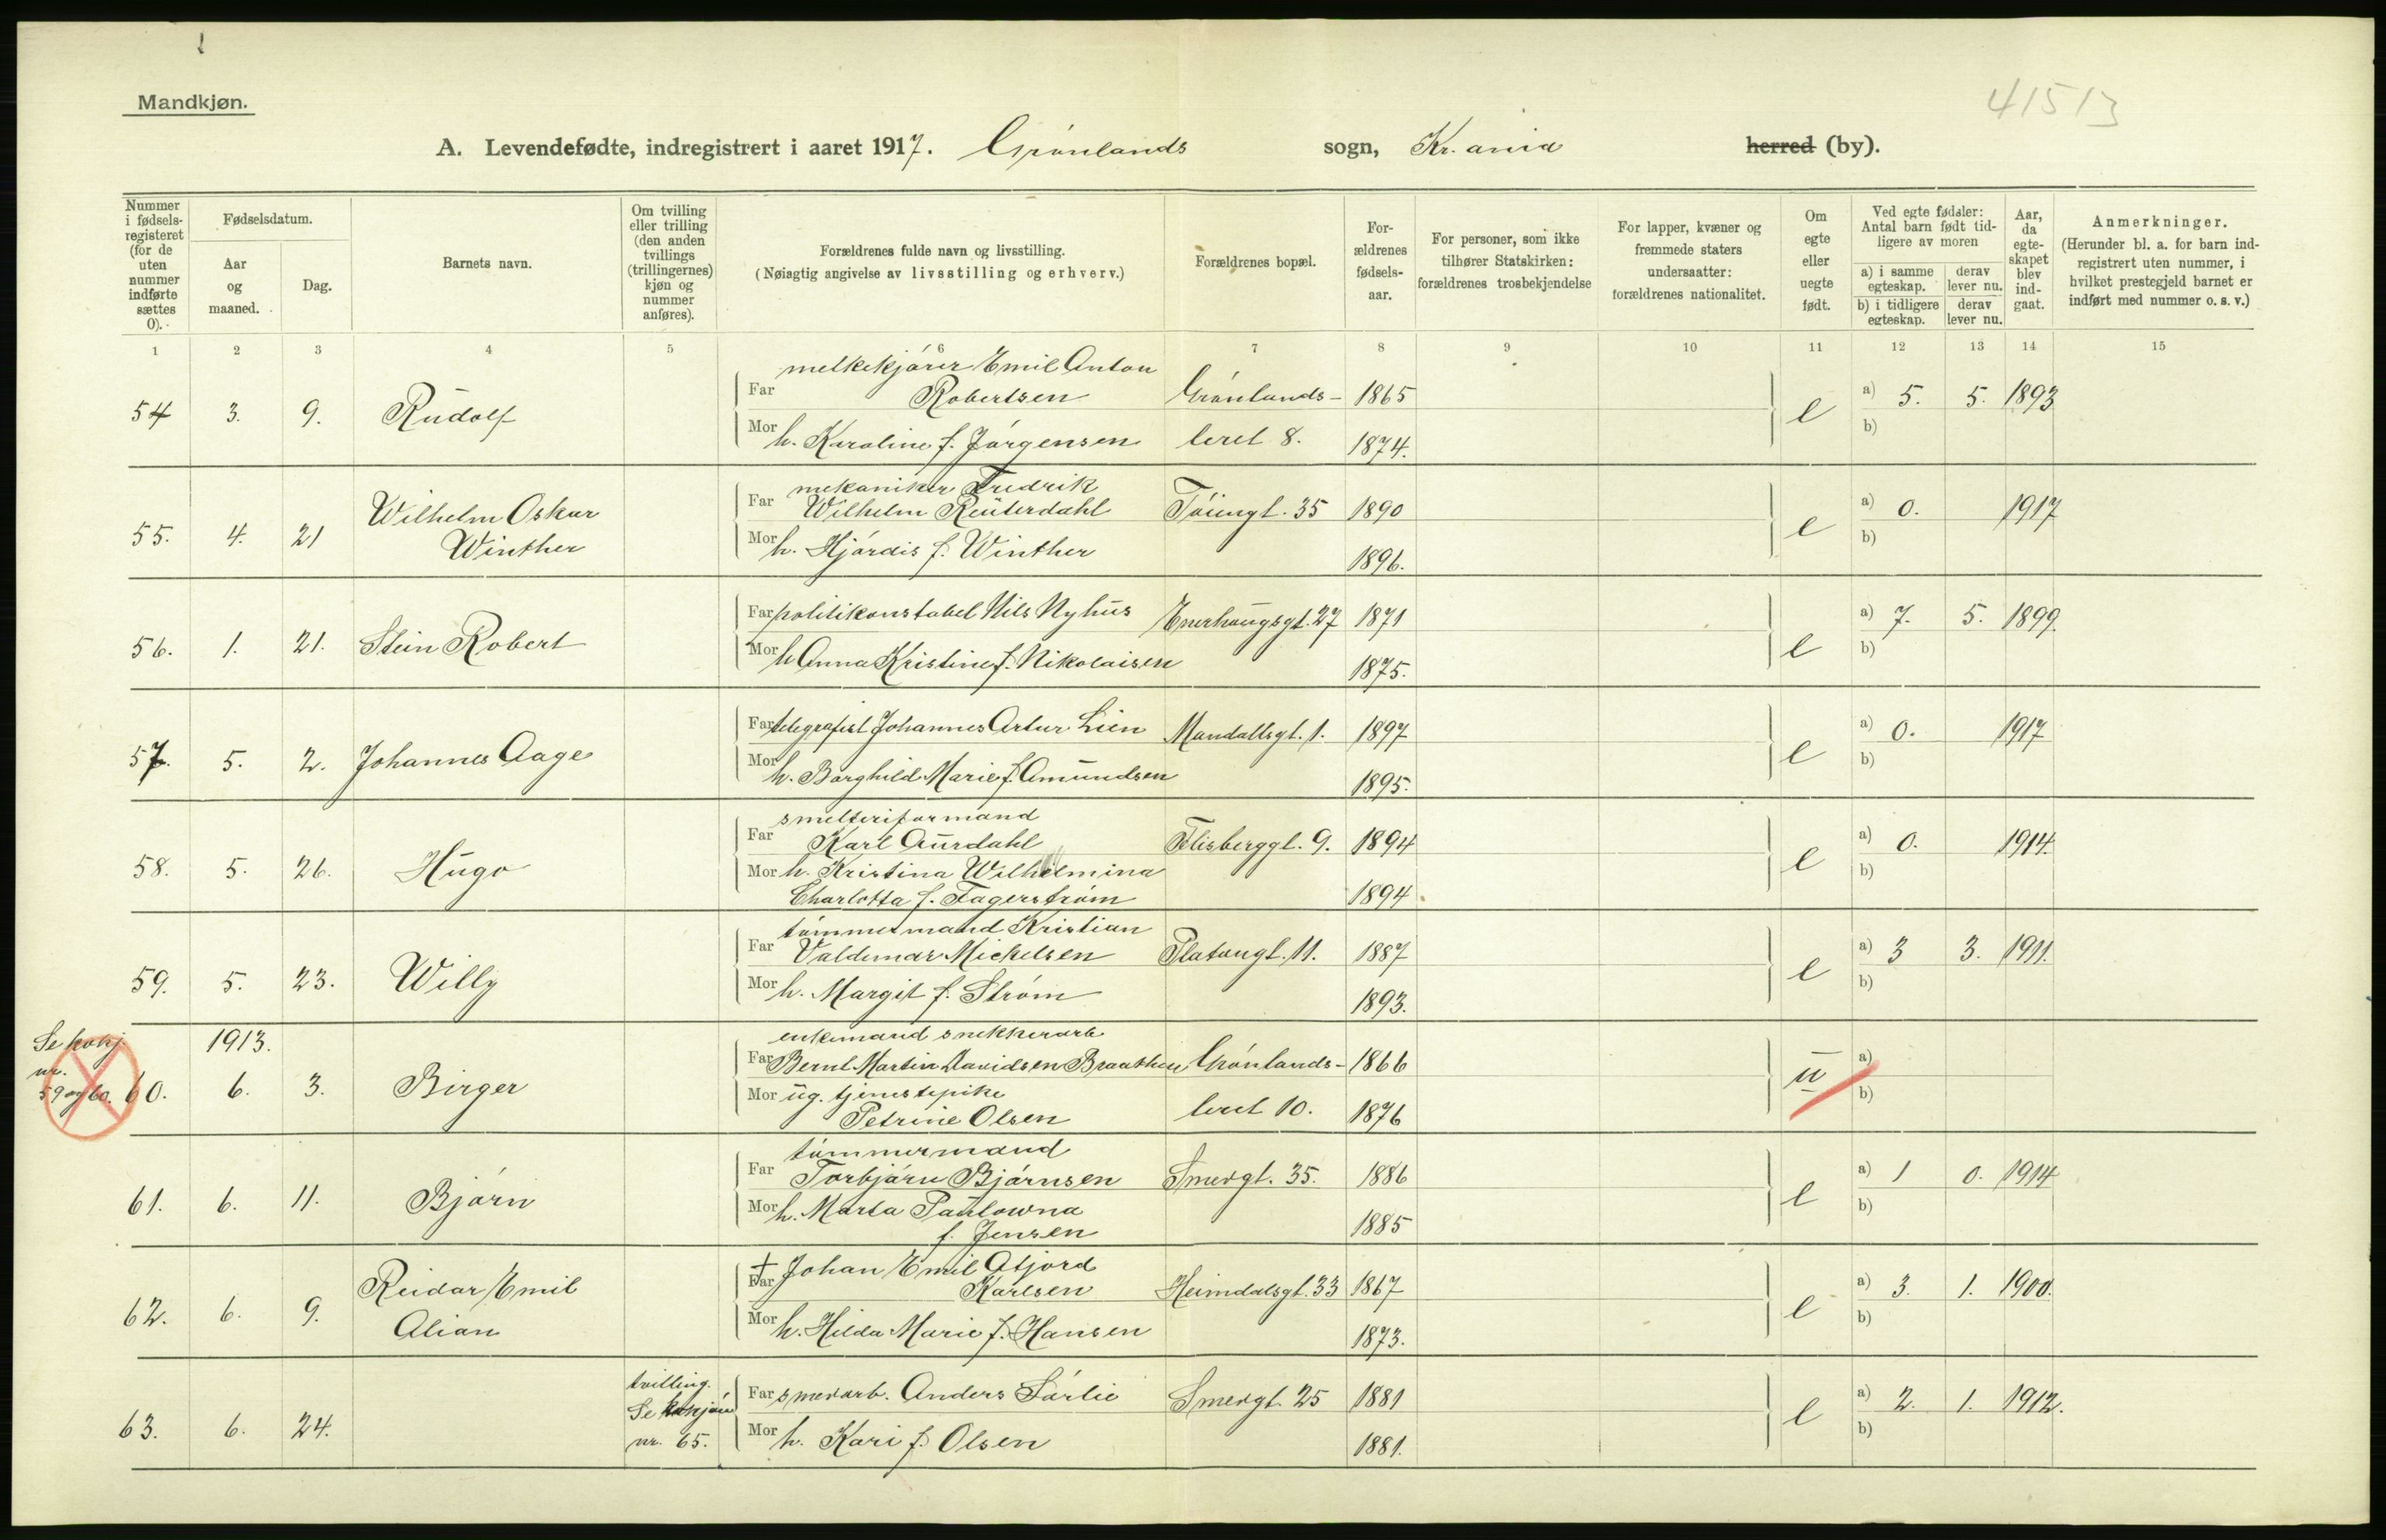 Mandkjøn.
41513
A. Levendefødte, indregistrert i aaret 1917. Grønlands sogn, Kr.ania herred (by).
Nummer i fødselsregisteret (for de uten nummer indførte sættes 0).
Fødselsdatum.
Aar og maaned.
Dag.
Barnets navn.
Om tvilling eller trilling (den anden tvillings (trillingernes) kjøn og nummer anføres).
Forældrenes fulde navn og livsstilling.
(Nøiagtig angivelse av livsstilling og erhverv.)
Forældrenes bopæl.
Forældrenes fødselsaar.
For personer, som ikke tilhører Statskirken: forældrenes trosbekjendelse
For lapper, kvæner og fremmede staters undersaatter: forældrenes nationalitet.
Om egte eller uegte født.
Ved egte fødsler: Antal barn født tidligere av moren
a) i samme egteskap.
derav lever nu.
b) i tidligere egteskap.
derav lever nu.
Aar, da egteskapet blev indgaat.
Anmerkninger.
(Herunder bl. a. for barn indregistrert uten nummer, i hvilket prestegjeld barnet er indført med nummer o. s. v.)
1 2 3 4 5 6 7 8 9 10 11 12 13 14 15
melkekjører Emil Anton
Far Robertsen Grønlands- 1865
54 3. 9. Rudolf e a) 5. 5. 1893
Mor h. Karoline f. Jørgensen leret 8. 1874. b)
mekaniker Fredrik
Far Wilhelm Reuterdahl Tøiengt. 35 1890
55. 4. 21 Wilhelm Oskar Winther e a) 0. 1917
Mor h. Hjørdis f. Winther 1896. b)
Far politikonstabel Nils Nyhus Enerhaugsgt. 27 1871
56. 1. 21. Stein Robert e a) 7. 5. 1899.
Mor h Anna Kristine f. Nikolaisen 1875. b)
Far telegrafist Johannes Artur Lien Mandallsgt. 1. 1897
57. 5. 2. Johannes Aage e a) 0. 1917
Mor h. Borghild Marie f. Amundsen 1895. b)
smelteriformand
Far Karl Aurdahl Flisberggt. 9. 1894
58. 5. 26. Hugo e a) 0. 1914.
Mor h. Kristina Wilhelmina b)
Charlotta f. Fagerstrøm 1894
tømmermand Kristian
Far Valdemar Mickelsen Platougt. 11. 1887
59. 5. 23. Willy e a) 3 3. 1911.
Mor h. Margit f. Strøm 1893. b)
Se kvkj. nr. 59 og 60.
1913.
enkemand snekkerarb.
Far Bernt Martin Davidsen Braathen Grønlands- 1866
60. 6. 3. Birger u a)
Mor ug. tjenestepike leret 10. 1876 b)
Petrine Olsen
tømmermand
Far Torbjørn Bjørnsen Smedgt. 35. 1886
61. 6. 11. Bjørn e a) 1 0. 1914
Mor h. Marta Paulowna b)
f. Jensen 1885
† Johan Emil Atjord
Far Karlsen Heimdalsgt. 33 1867
62. 6. 9. Reidar Emil Alian e a) 3. 1. 1900.
Mor h. Hilda Marie f. Hansen 1873. b)
tvilling.
Se kvkjøn
nr. 65.
Far smedarb. Anders Sørlie Smedgt. 25 1881
63. 6. 24. e a) 2. 1. 1912.
Mor h. Kari f. Olsen 1881. b)